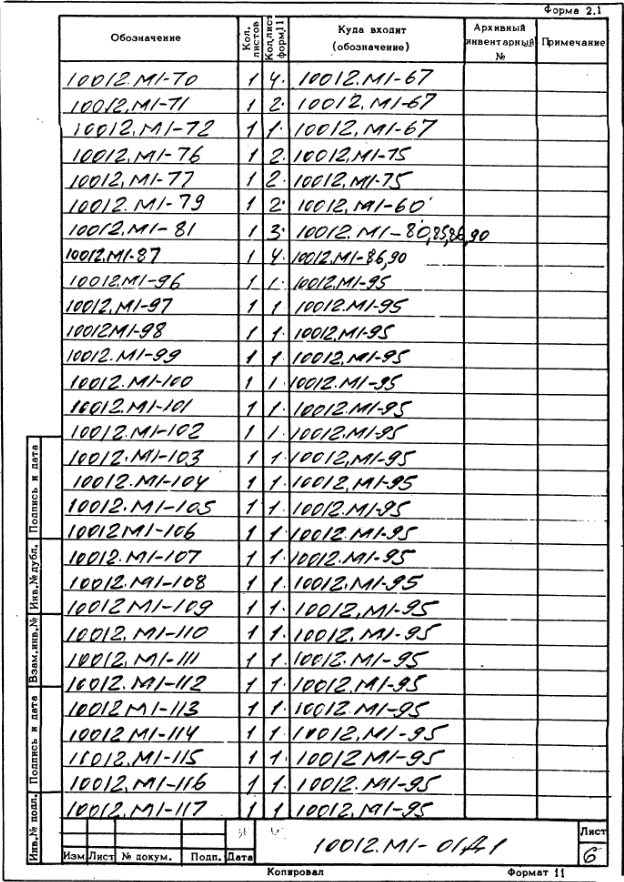 Форма 2.1
Обозначение Кол. листов Кол. лист форм. 11 Куда входит (обозначение) Архивный инвентарный № Примечание
10012.М1-70 1 4. 10012.М1-67
10012.М1-71 1 2. 10012.М1-67
10012.М1-72 1 1. 10012.М1-67
10012.М1-76 1 2. 10012.М1-75
10012.М1-77 1 2. 10012.М1-75
10012.М1-79 1 2. 10012.М1-60
10012.М1-81 1 3. 10012.М1-80,85,86,90
10012.М1-87 1 4. 10012.М1-86,90
10012.М1-96 1 1. 10012.М1-95
10012.М1-97 1 1 10012.М1-95
10012М1-98 1 1. 10012.М1-95
10012.М1-99 1 1. 10012.М1-95
10012.М1-100 1 1. 10012.М1-95
10012.М1-101 1 1. 10012.М1-95
10012.М1-102 1 1. 10012.М1-95
10012.М1-103 1 1. 10012.М1-95
10012.М1-104 1 1. 10012.М1-95
10012.М1-105 1 1. 10012.М1-95
10012М1-106 1 1. 10012.М1-95
10012.М1-107 1 1. 10012.М1-95
10012.М1-108 1 1. 10012.М1-95
10012.М1-109 1 1. 10012.М1-95
10012.М1-110 1 1. 10012.М1-95
10012.М1-111 1 1. 10012.М1-95
10012.М1-112 1 1. 10012.М1-95
10012М1-113 1 1. 10012.М1-95
10012.М1-114 1 1. 10012.М1-95
10012.М1-115 1 1. 10012М1-95
10012.М1-116 1 1. 10012.М1-95
10012.М1-117 1 1 10012.М1-95
Подпись и дата
Инв.№ дубл.
Взам.инв.№
Подпись и дата
Инв.№ подл.
10012.М1-01Д1
Лист
6
Изм Лист № докум. Подп. Дата
Копировал Формат 11